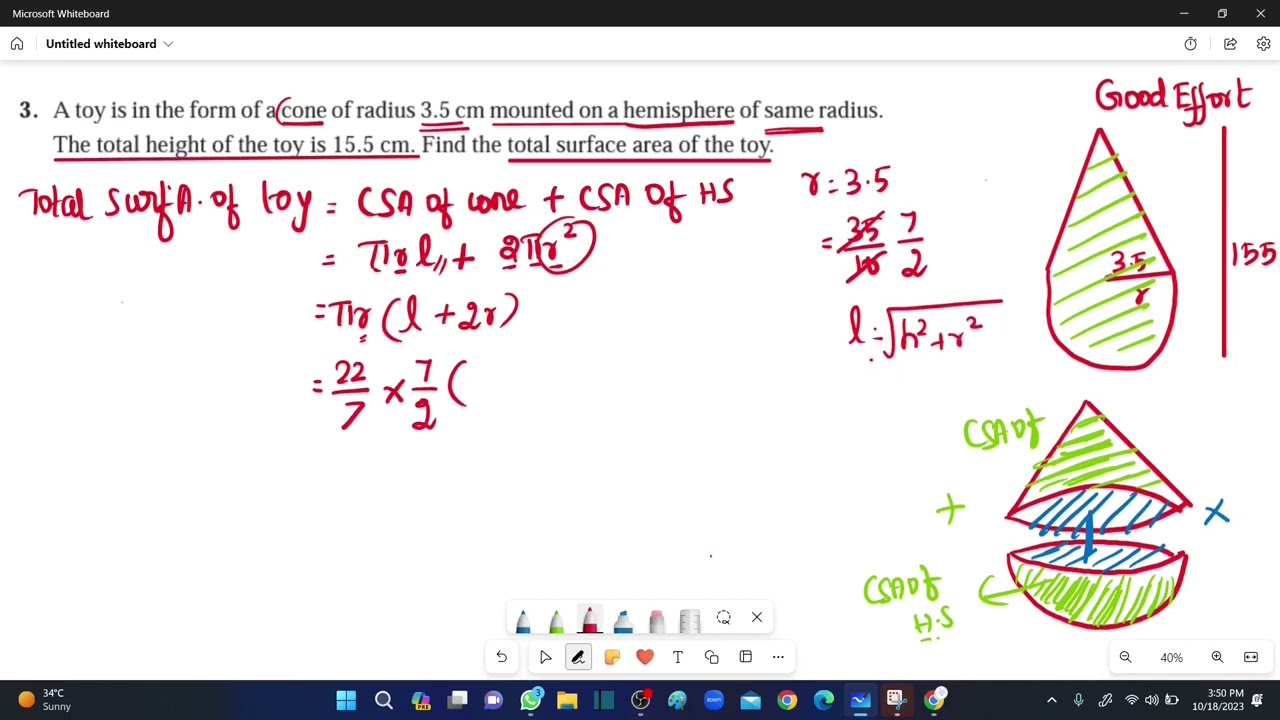 Microsoft Whiteboard
Untitled whiteboard
3. A toy is in the form of a cone of radius 3.5 cm mounted on a hemisphere of same radius.
The total height of the toy is 15.5 cm. Find the total surface area of the toy.
Good Effort
Total Surf A. of toy = CSA of cone + CSA of HS
= πrl + 2πr²
= πr (l + 2r)
= 22/7 × 7/2 (
r = 3.5
= 35/10 7/2
l = √h² + r²
3.5
r
155
CSA of
+
x
CSA of
H.S
40%
34°C
Sunny
PRE
3
zoom
3:50 PM
10/18/2023